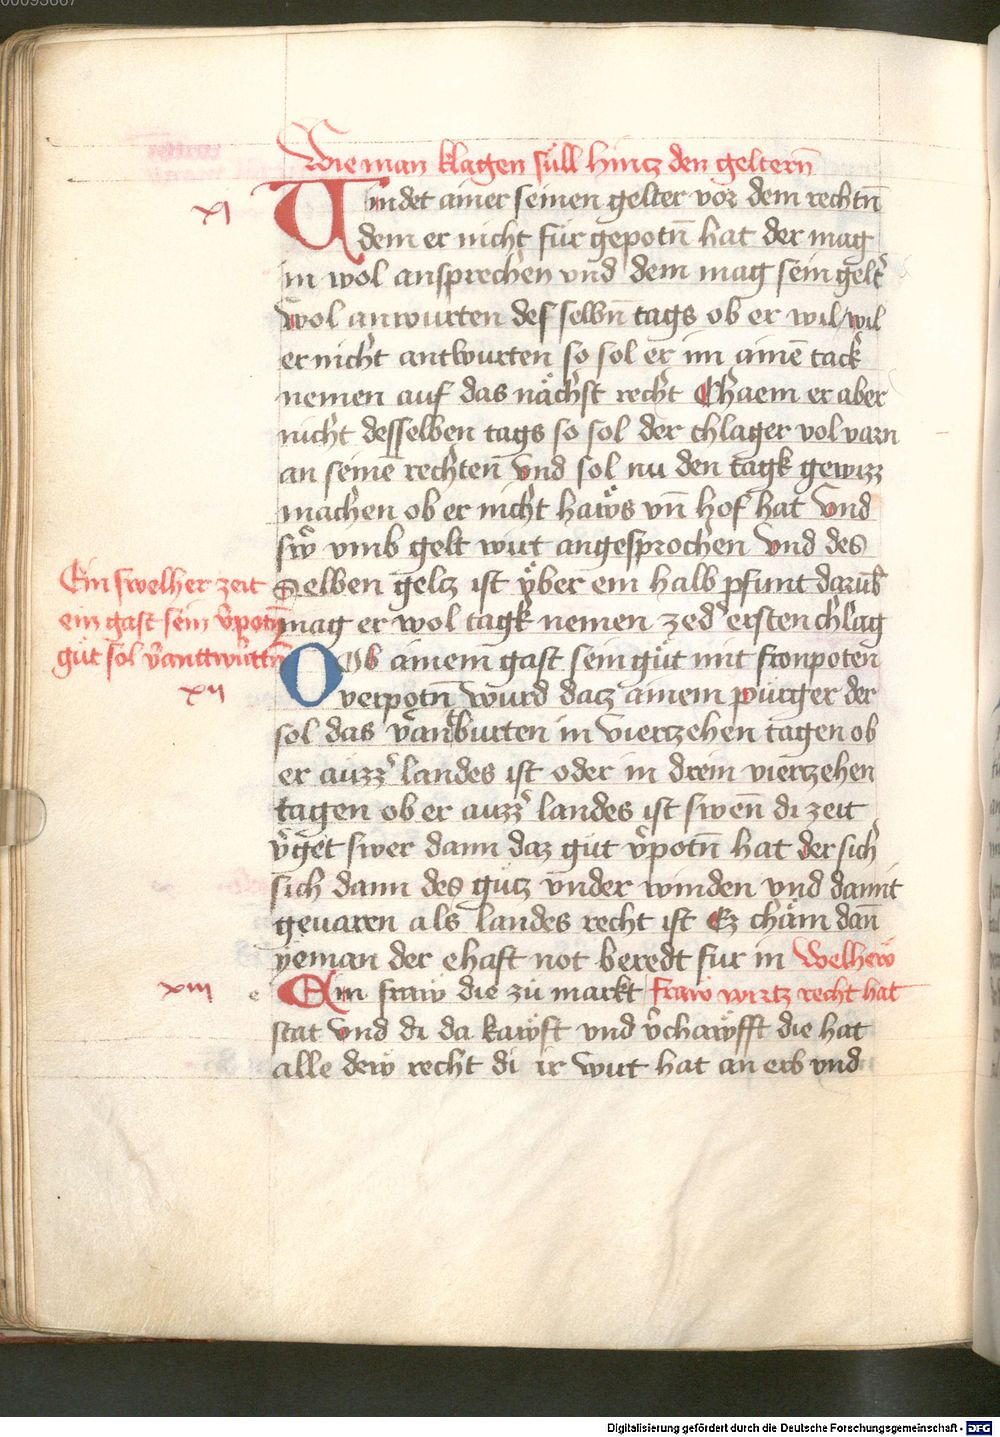 Wie man klagen süll hintz den geltern̄
xi
Vindet ainer seinen gelter vor dem rechtn̄
dem er nicht für gepotn̄ hat der mag
in wol ansprechen vnd dem mag sein gelt̕
wol anwurten des selbn̄ tags ob er wil / wil
er nicht antwurten so sol er im ainē tack
nemen auf das nächst recht Chaem er aber
nicht desselben tags so sol der chlager vol varn
an seinē rechten̄ vnd sol nu den tagk gewizz
machen ob er nicht haws vn̄ hof hat vnd
swͦ vmb gelt wirt angesprochen vnd des
Selben geltz ist yͤber ein halb pfunt darüb̕
mag er wol tagk nemen zed̕ ersten chlag
Ein swelher zeit
ein gast sein v̕potn̄
güt sol v̕anttwürttn̄
xii
Ob ainem gast sein güt mit fronpoten̄
verpotn̄ wurd datz ainem purger der
sol das v̕antburten in viertzehen tagen ob
er auzz̕ landes ist oder in drein viertzehen
tagen ob er auzz̕ landes ist swen̄ di zeit
v̕get swer dann daz güt v̕potn̄ hat der sich
sich dann des gütz vnder winden vnd damit
geuaren als landes recht ist Ez chäm dan̄
yeman der ehaft not beredt für in Welhew
xiii
e
Ein fraw die zü markt fraw wirtz recht hat
stat vnd di da kawft vnd v̕chawfft die hat
alle dew recht di ir wirt hat an erb vnd
Digitalisierung gefördert durch die Deutsche Forschungsgemeinschaft - DFG